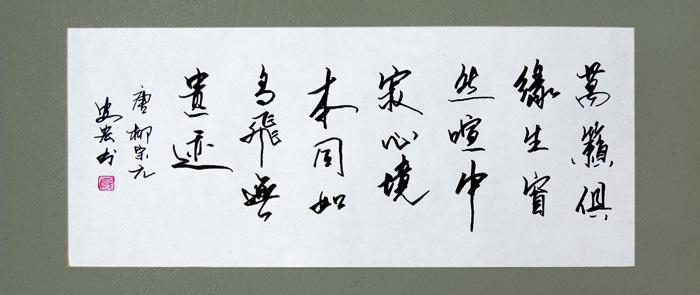 萬籟俱
緣生窅
然喧中
寂心境
本同如
鳥飛無
遺迹
唐柳宗元